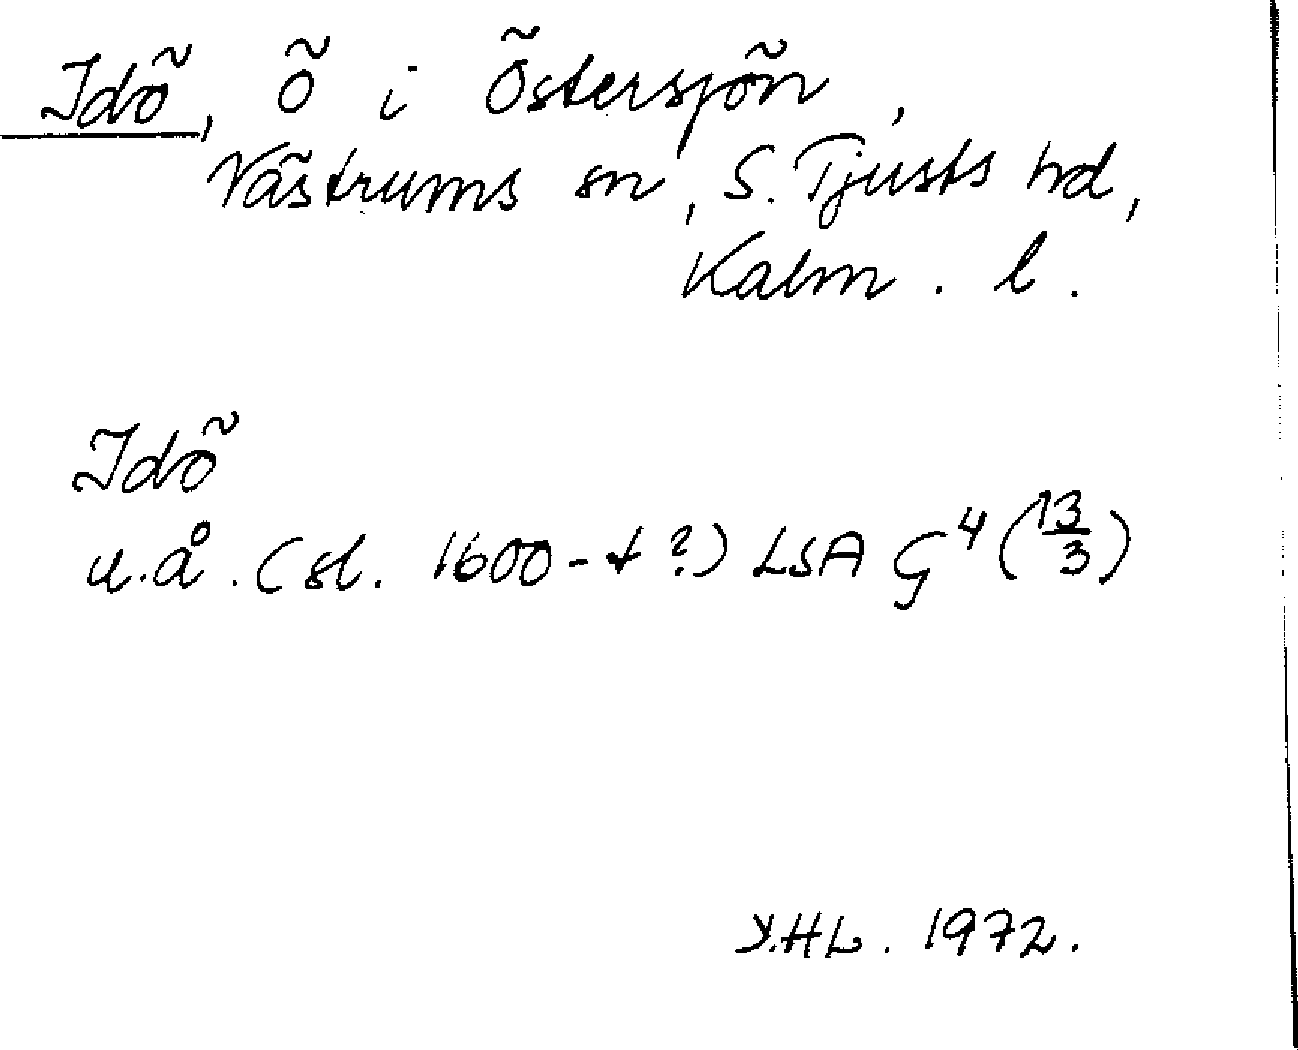 Idö, ö i Östersjön,
Västrums sn, S. Tjusts hd,
Kalm. l.
Idö
u.å. (sl. 1600-t?) LSA G⁴ (13/3)
Y.HL. 1972.